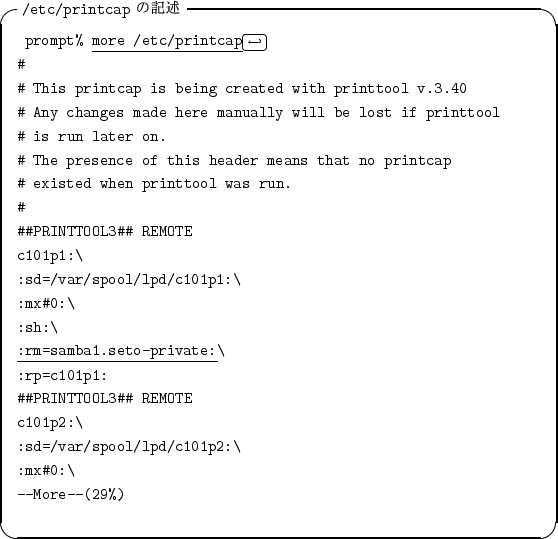 /etc/printcap の記述
prompt% more /etc/printcap↩
#
# This printcap is being created with printtool v.3.40
# Any changes made here manually will be lost if printtool
# is run later on.
# The presence of this header means that no printcap
# existed when printtool was run.
#
##PRINTTOOL3## REMOTE
c101p1:\
:sd=/var/spool/lpd/c101p1:\
:mx#0:\
:sh:\
:rm=samba1.seto-private:\
:rp=c101p1:
##PRINTTOOL3## REMOTE
c101p2:\
:sd=/var/spool/lpd/c101p2:\
:mx#0:\
--More--(29%)